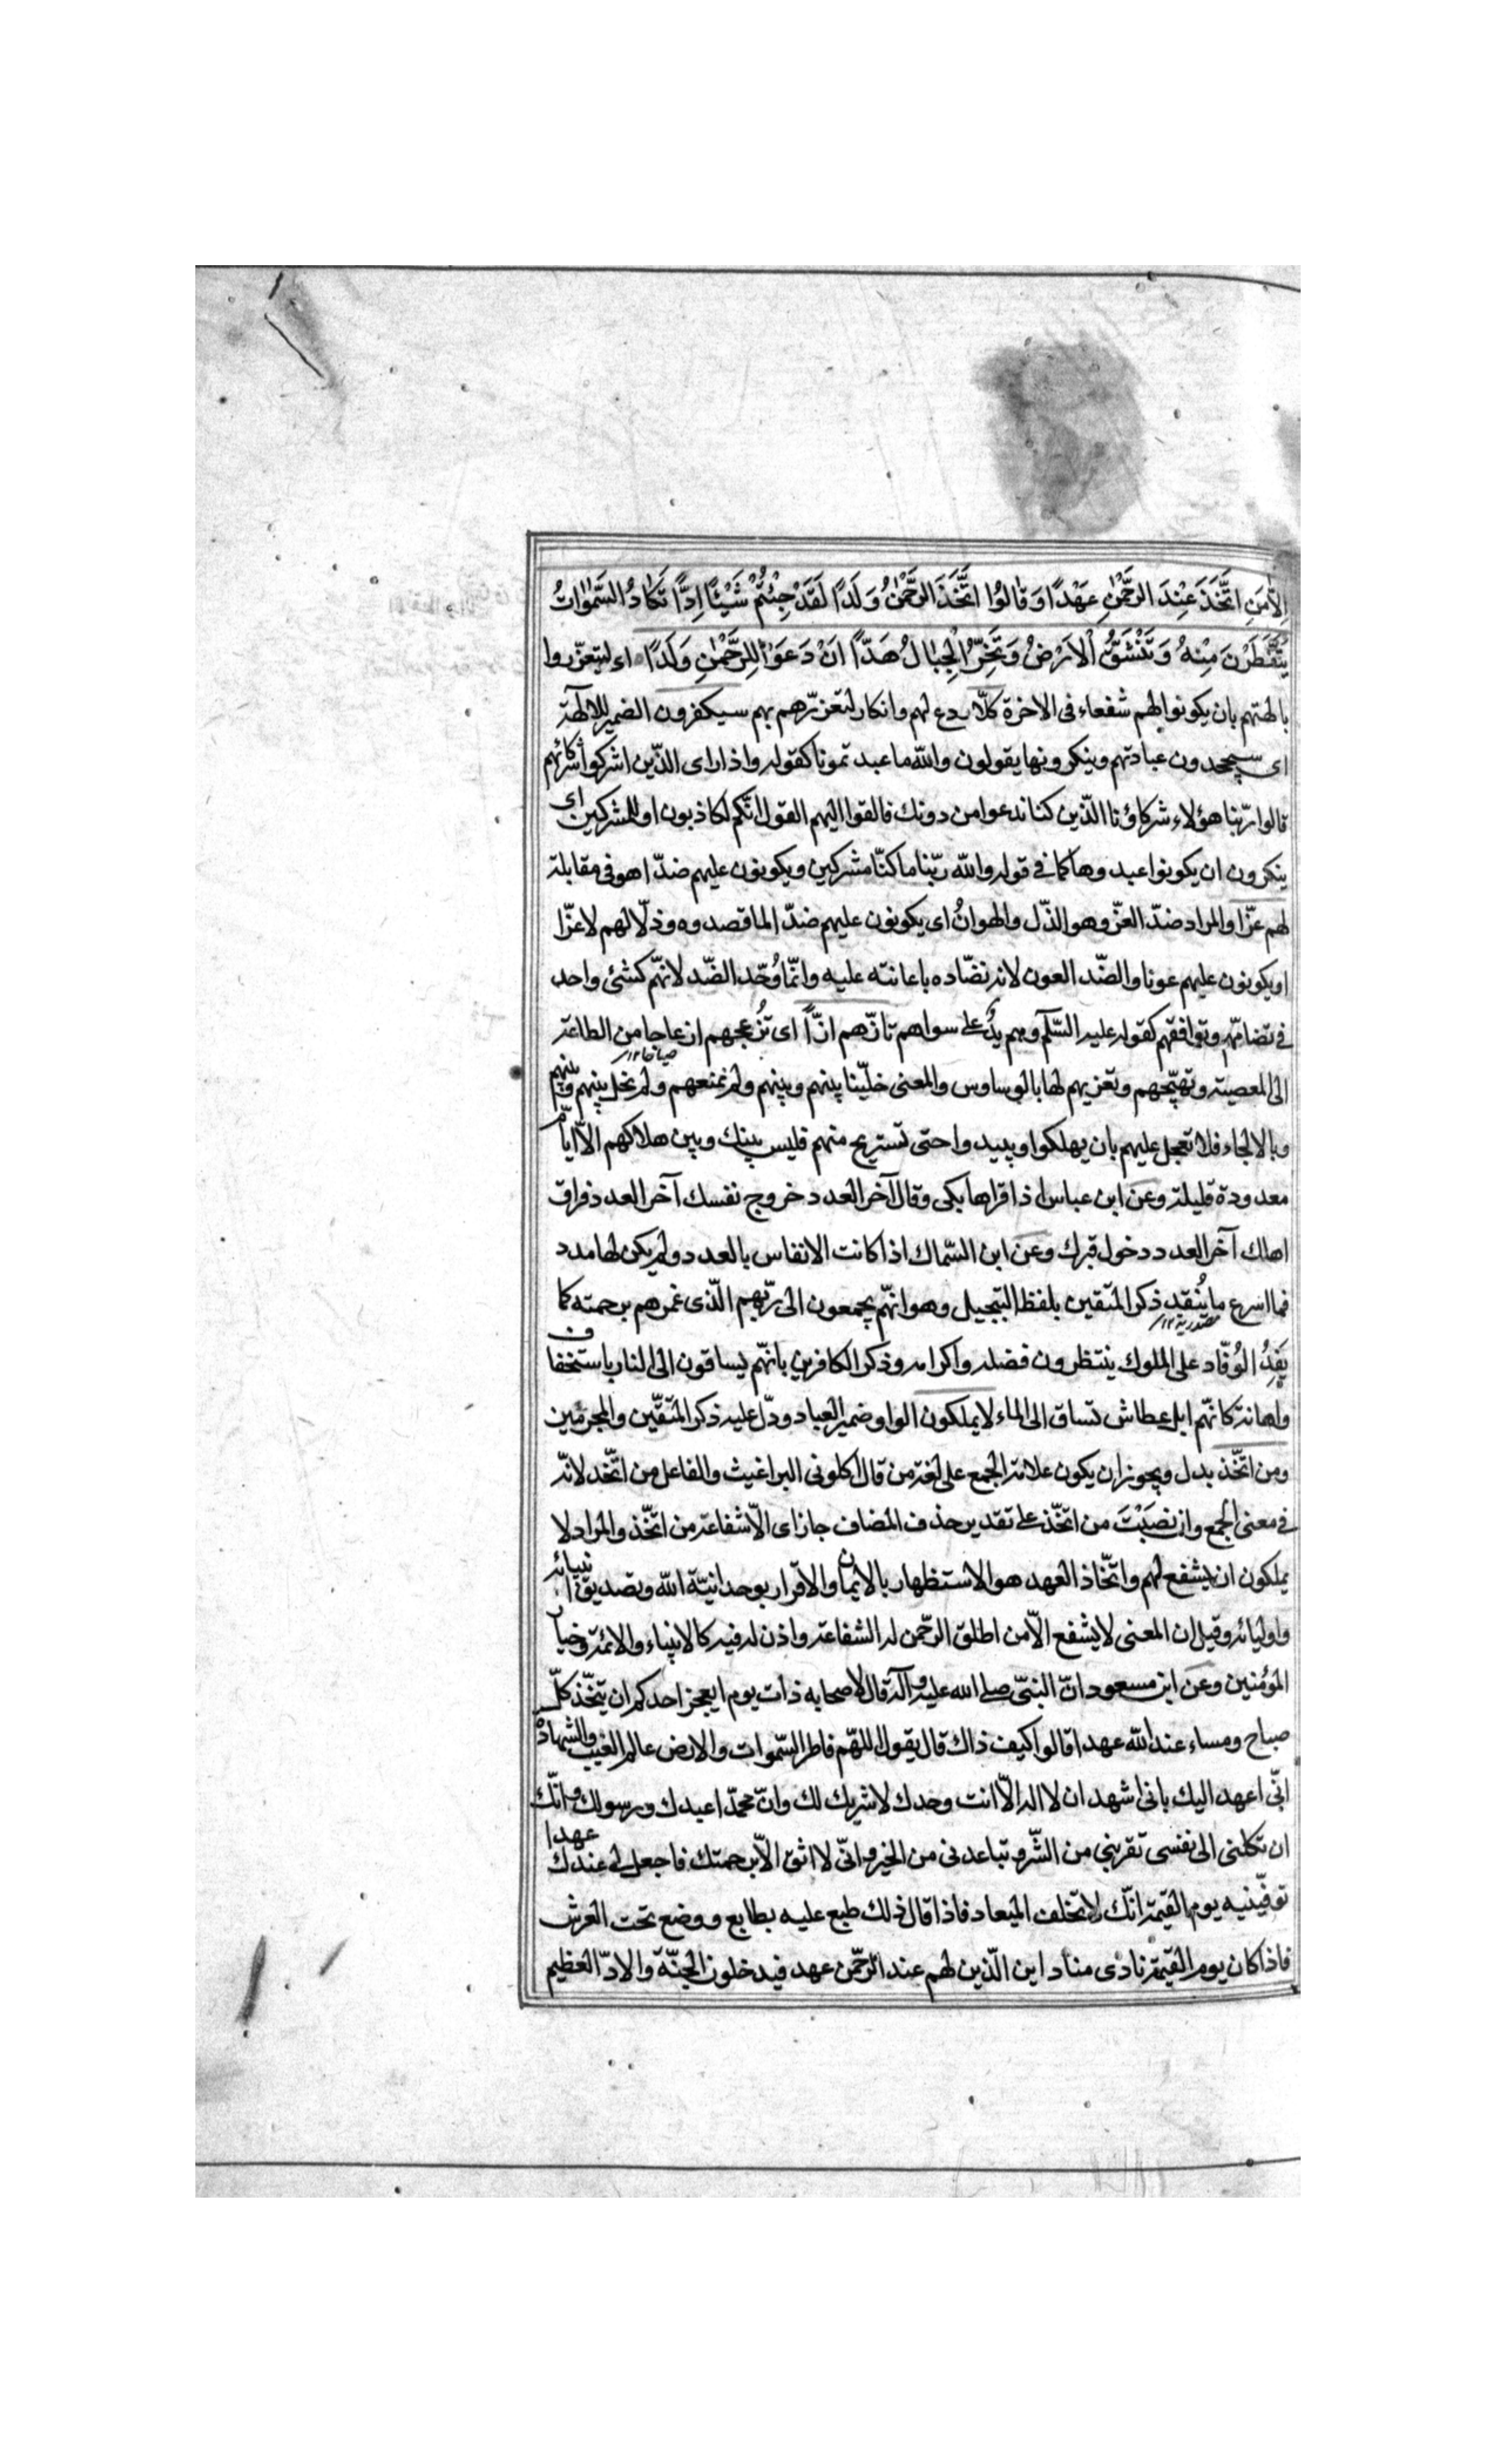 اِلاّٰمَنِ اتَّخَذَ عِنْدَ الرَّحْمٰنِ عَهْدًا وَ قٰالُوا اتَّخَذَ الرَّحْمٰنُ وَلَدًا لَقَدْ جِئْتُمْ شَيْئًا اِدًّا تَكٰادُ السَّمٰوٰاتُ
يَتَفَطَّرْنَ مِنْهُ وَ تَنْشَقُّ الْاَرْضُ وَ تَخِرُّ الْجِبٰالُ هَدًّا اَنْ دَعَوْا لِلرَّحْمٰنِ وَلَدًا اى ليتعزّزوا
بالهتهم بان يكونوا لهم شفعاء فى الاخرة كلّا ردع لهم وانكار لتعزّزهم بهم سيكفرون الضمير للالهة
اى سيجحدون عبادتهم وينكرونها يقولون والله ما عبدتمونا كقوله واذا راى الذّين اشركوا شركائهم
قالوا ربّنا هؤلاء شركاؤنا الذّين كنا ندعوا من دونك فالقوا اليهم القول انّكم لكاذبون او للمشركين اى
ينكرون ان يكونوا عبدوها كما فى قوله والله ربّنا ما كنّا مشركين ويكونون عليهم ضدّا هو فى مقابلة
لهم عزّا والمراد ضدّ العزّ وهو الذّل والهوانُ اى يكونون عليهم ضدّا لما قصدوه وذلّا لهم لا عزّا
او يكونون عليهم عونا والضّد العون لانه نضّاده باعانته عليه وانّما وُحّد الضّد لانهّم كشئى واحد
فى تضامّهم وتوافقهم كقوله عليه السّلم وهم يدٌ على سواهم تازّهم ازّاً اى تُزعجهم ازعاجا من الطاعة
الى المعصية وتهيّجهم وتغريهم لها بالوساوس والمعنى خلّينا بينهم وبينهم ولم نمنعهم ولم نخل بينهم وبينهم
وبالالجاء فلا تعجل عليهم بان يهلكوا ويبيدوا حتى تستريح منهم فليس بينك وبين هلاكهم الاّ ايّام
معدودة قليلة وعن ابن عباس اذا قراها بكى وقال آخر العدد خروج نفسك آخر العدد فراق
اهلك آخر العدد دخول قبرك وعن ابن السّماك اذا كانت الانفاس بالعدد ولم يكن لها مدد
فما اسرع ما يُنفد ذكر المتقين بلفظ التبجيل وهو انهّم يجمعون الى ربّهم الّذى غمرهم برحمته كما
يَفِدُ الوُفّاد على الملوك ينتظرون فضله واكرامه وذكر الكافرين بانهّم يساقون الى النار باستخفاف
واهانة كانهّم ابل عطاش تساق الى الماء لا يملكون الواو ضمير العباد ودلّ عليه ذكر المتقّين والمجرمين
ومن اتّخذ بدل ويجوز ان يكون علامة الجمع على لغة من قال اكلونى البراغيث والفاعل من اتّخذ لانّه
فى معنى الجمع وان نصَبْتَ من اتّخذ على تقدير حذف المضاف جاز اى الّا شفاعة من اتّخذ والمراد لا
يملكون ان يشفع لهم واتّخاذ العهد هو الاستظهار بالايمان والاقرار بوحدانيّة الله وتصديق انبيائه
واوليائه وقيل ان المعنى لا يشفع الاّ من اطلق الرحّمن له الشفاعة واذن له فيه كالانبياء والائمة وخيار
المؤمنين وعن ابن مسعود انّ النبىّ صلى الله عليه وآله قال لاصحابه ذات يوم ايعجز احدكم ان يتخّذ كلّ
صباح ومساء عند الله عهدا قالوا كيف ذاك قال يقول اللهمّ فاطر السّموات والارض عالم الغيب والشهادة
انّى اعهد اليك بانى اشهد ان لا اله الّا انت وحدك لا شريك لك وانّ محمّدا عبدك ورسولك وانّك
ان تكلنى الى نفسى تقربنى من الشّر وتباعدنى من الخير وانّى لا اثق الاّ برحمتك فاجعل لى عندك عهدا
توفّينيه يوم القيمة انّك لا تخلف الميعاد فاذا قال ذلك طبع عليه بطابع ووضع تحت العرش
فاذا كان يوم القيمة نادى مناد اين الّذين لهم عند الرحّمن عهد فيدخلون الجنّة والادّ العظيم